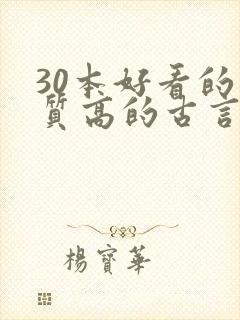 30本好看的
质高的古言
楊寶華